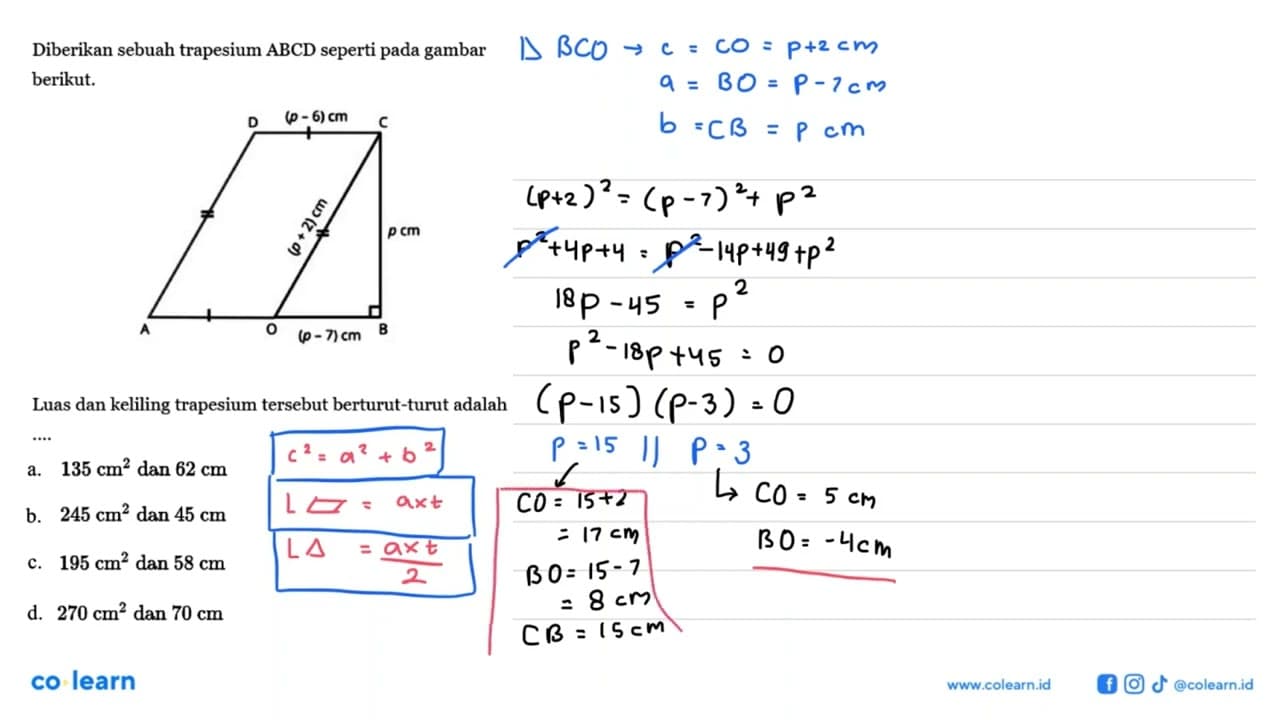 Diberikan sebuah trapesium ABCD seperti pada gambar
berikut.
D (p - 6) cm C
(p + 2) cm
p cm
A O (p - 7) cm B
Luas dan keliling trapesium tersebut berturut-turut adalah
....
a. 135 cm² dan 62 cm
b. 245 cm² dan 45 cm
c. 195 cm² dan 58 cm
d. 270 cm² dan 70 cm
c² = a² + b²
L ▱ = axt
L Δ = axt/2
Δ BCO → c = CO = p+2 cm
a = BO = p-7 cm
b = CB = p cm
(p+2)² = (p-7)² + p²
p²+4p+4 = p²-14p+49+p²
18p-45 = p²
p²-18p+45 = 0
(p-15) (p-3) = 0
p = 15 || p = 3
CO = 15+2
= 17 cm
BO = 15-7
= 8 cm
CB = 15 cm
↳ CO = 5 cm
BO = -4cm
co·learn
www.colearn.id
@colearn.id